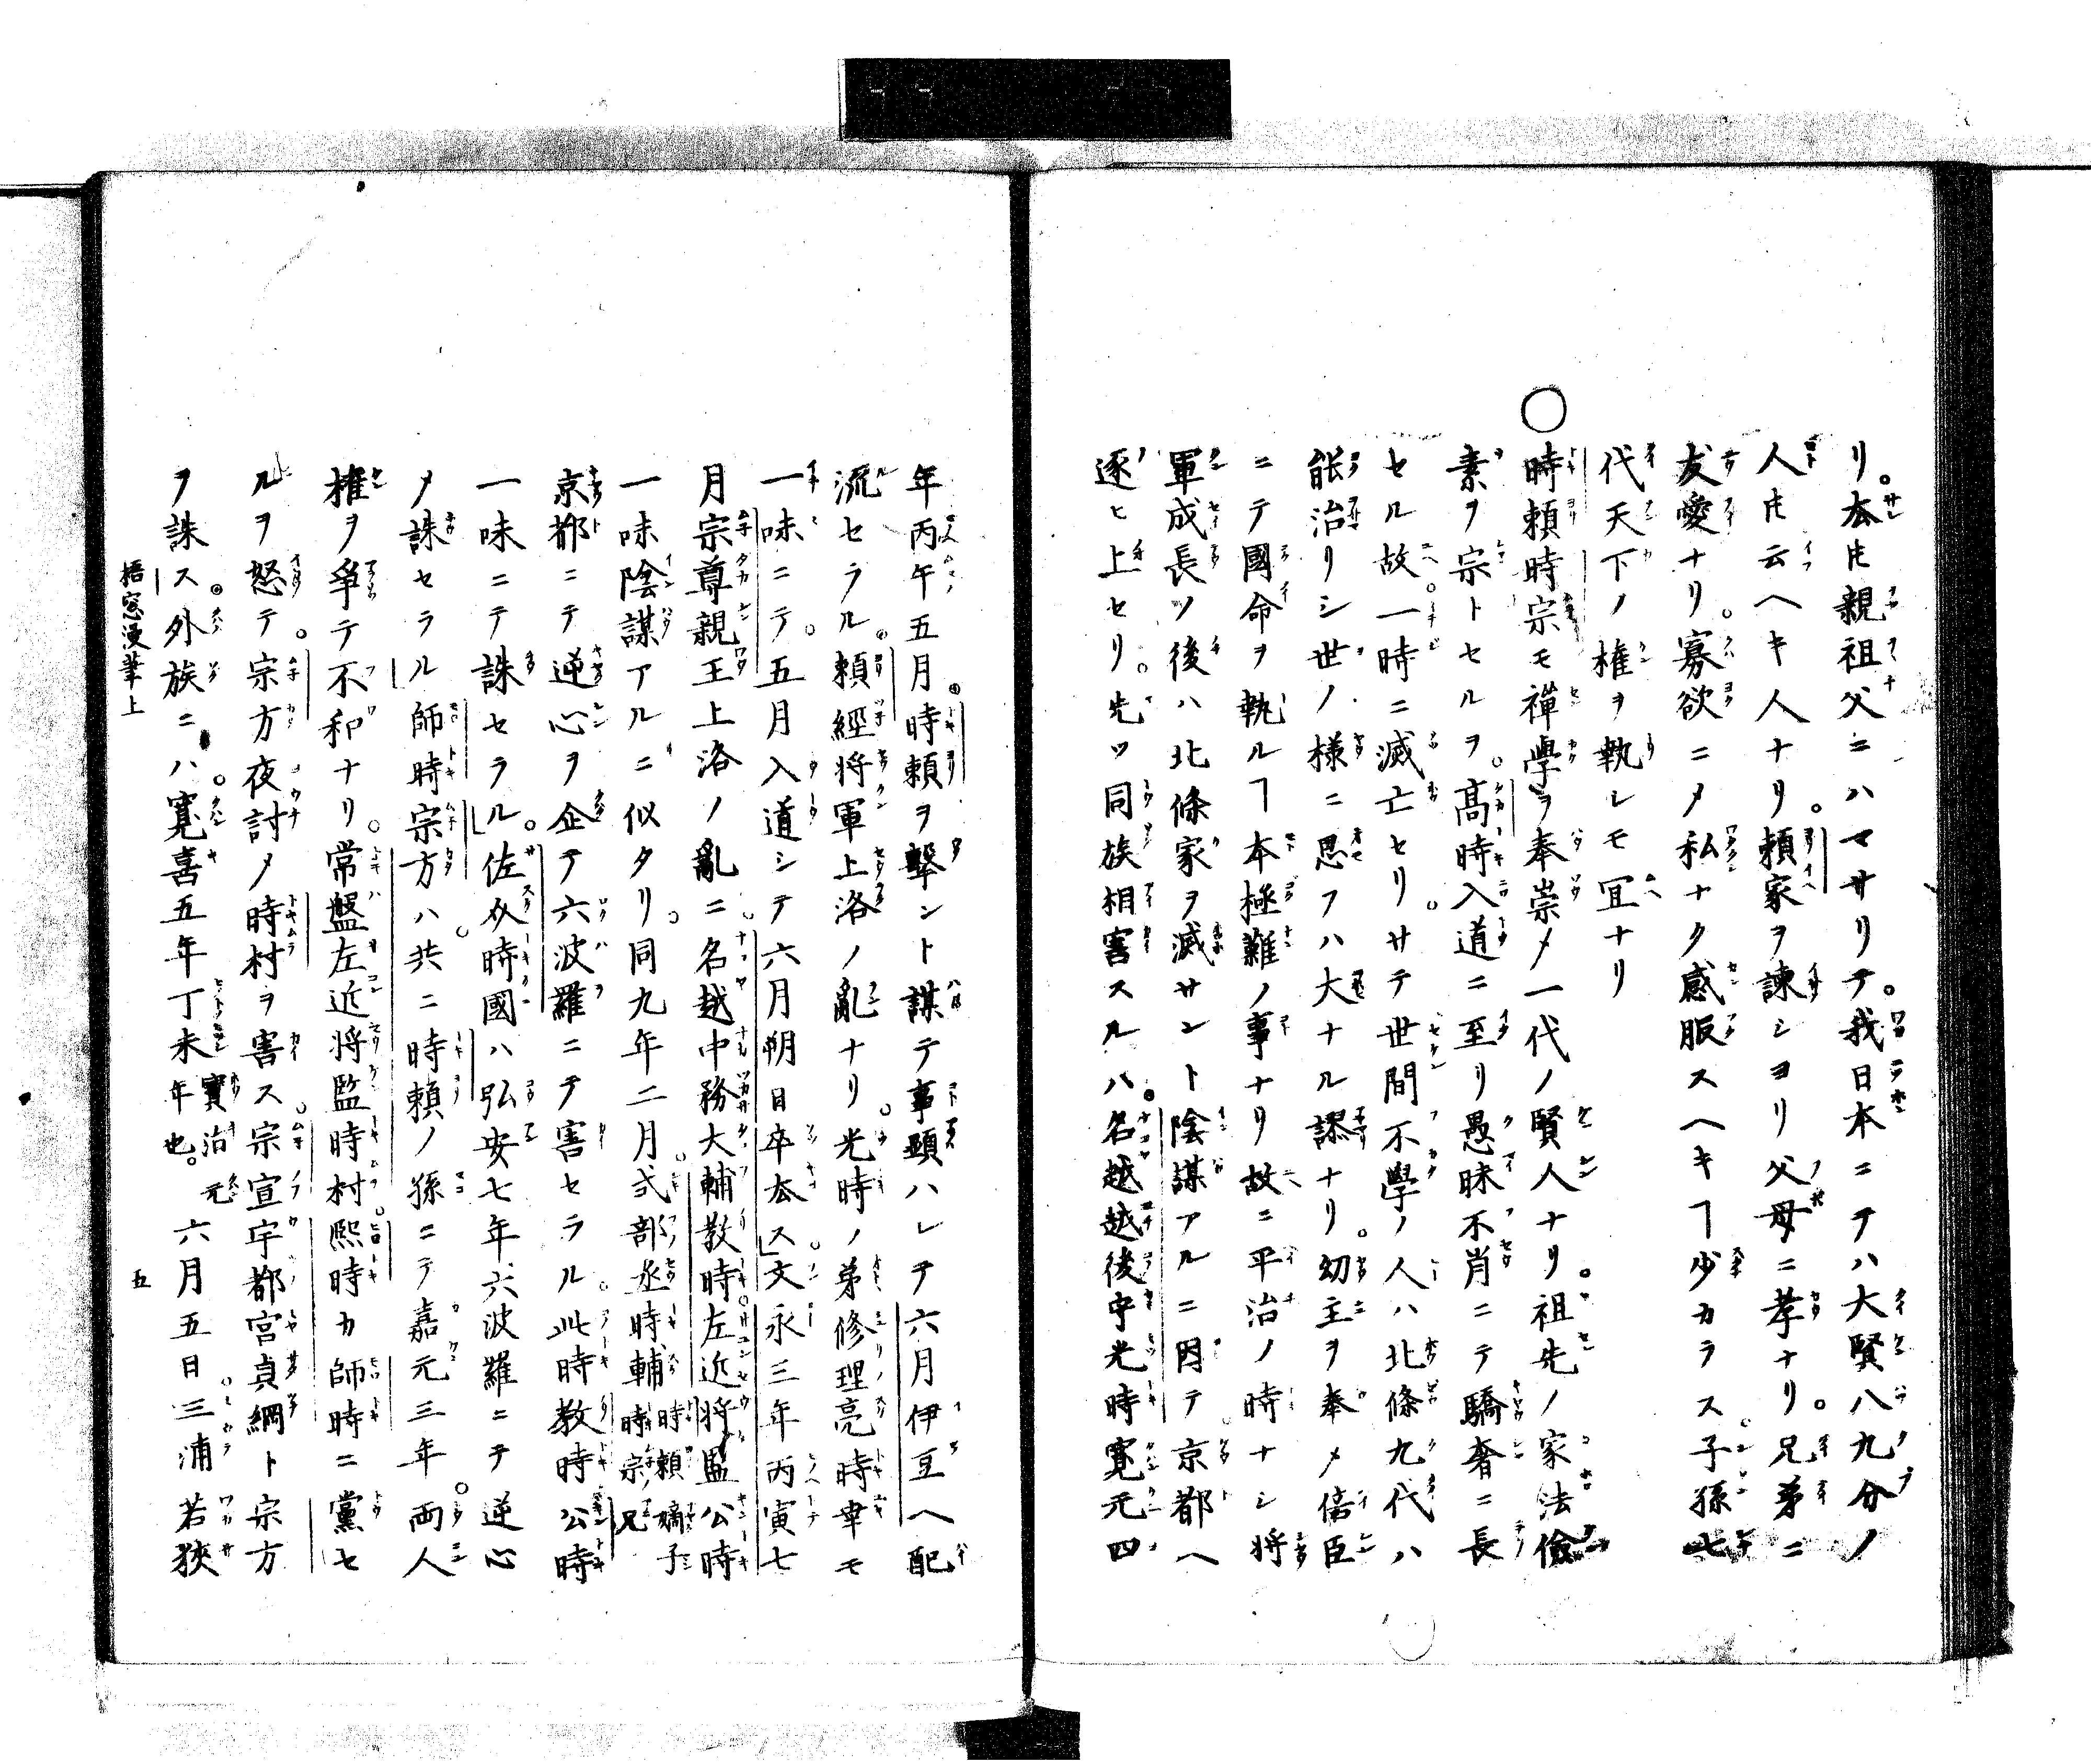 リ。夲𪜈親祖父ニハマサリテ。我日本ニテハ大賢八九分ノ
人𪜈云ヘキ人ナリ。頼家ヲ諫シヨリ父母ニ孝ナリ。兄弟ニ
友愛ナリ。寡欲ニメ私ナク感服スヘキヿ少カラス。子孫七
代天下ノ權ヲ執レモ宜ナリ
○時頼時宗モ禪學ヲ奉崇メ一代ノ賢人ナリ。祖先ノ家法儉
素ヲ宗トセルヲ。髙時入道ニ至リ愚昧不肖ニテ驕奢ニ長
セル故。一時ニ滅亡セリ。サテ世間不學ノ人ハ北條九代ハ
能治リシ世ノ様ニ思フハ大ナル謬ナリ。幼主ヲ奉メ倍臣
ニテ國命ヲ執ルヿ本極難ノ事ナリ故ニ平治ノ時ナシ將
軍成長ソ後ハ北條家ヲ滅サント陰謀アルニ因テ。京都ヘ
逐ヒ上セリ。先ツ同族相害スルハ。名越越後守光時寛元四
年丙午五月。時頼ヲ撃ント謀テ事顯ハレテ六月伊豆ヘ配
流セラル。頼經将軍上洛ノ亂ナリ。光時ノ弟修理亮時幸モ
一味ニテ。五月入道シテ六月朔日卒去ス。文永三年丙寅七
月宗尊親王上洛ノ亂ニ。名越中務大輔教時左近将監公時
一味陰謀アルニ似タリ。同九年二月。式部丞時輔時頼嫡子時宗ノ兄
京都ニテ逆心ヲ企テ六波羅ニテ害セラル。此時教時公時
一味ニテ誅セラル。佐介時國ハ弘安七年六波羅ニテ逆心
メ誅セラル師時宗方ハ。共ニ時頼ノ孫ニテ嘉元三年。両人
權ヲ爭テ不和ナリ。常盤左近将監時村。熙時カ師時ニ黨セ
ルヲ怒テ。宗方夜討メ時村ヲ害ス。宗宣宇都宮貞綱ト宗方
ヲ誅ス。外族ニハ。寛喜五年丁未年也。寳治元六月五日。三浦若狹
梧窓漫筆上
五